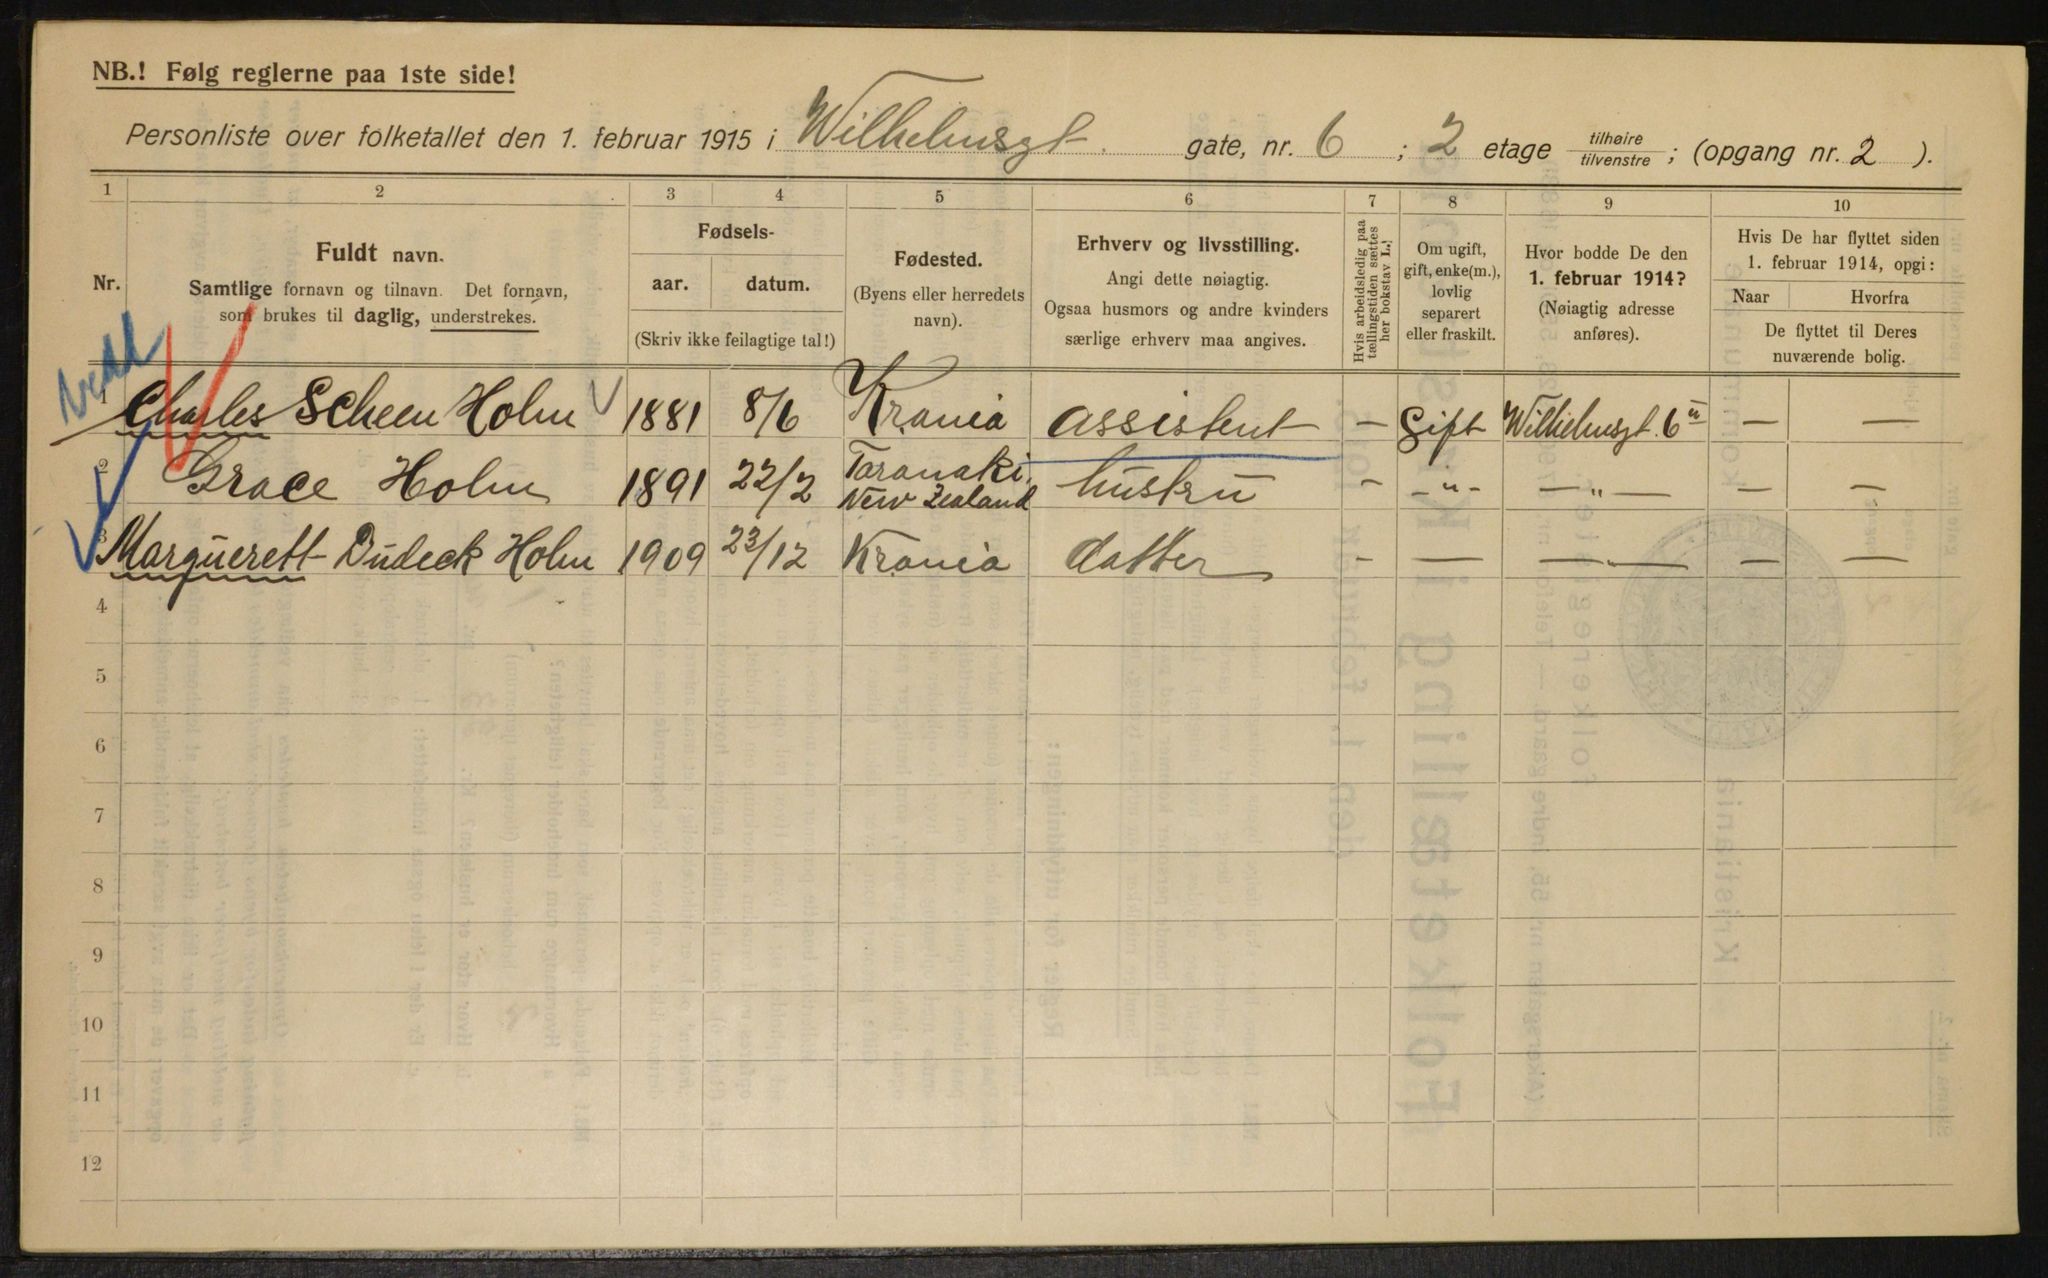 NB.! Følg reglerne paa 1ste side!
Personliste over folketallet den 1. februar 1915 i Wilhelmsgt. gate, nr. 6 ; 2 etage tilhøire / tilvenstre ; (opgang nr. 2 ).
1 2 3 4 5 6 7 8 9 10
Nr.
Fuldt navn.
Samtlige fornavn og tilnavn. Det fornavn,
som brukes til daglig, understrekes.
Fødsels-
aar. datum.
(Skriv ikke feilagtige tal!)
Fødested.
(Byens eller herredets
navn).
Erhverv og livsstilling.
Angi dette nøiagtig.
Ogsaa husmors og andre kvinders
særlige erhverv maa angives.
Hvis arbeidsledig paa
tællingstiden sættes
her bokstav L.)
Om ugift,
gift, enke(m.),
lovlig
separert
eller fraskilt.
Hvor bodde De den
1. februar 1914?
(Nøiagtig adresse
anføres).
Hvis De har flyttet siden
1. februar 1914, opgi:
Naar Hvorfra
De flyttet til Deres
nuværende bolig.
1 Charles Scheen Holm 1881 8/6 Krania assistent — Gift Wilhelmsgt. 6 II — —
2 Grace Holm 1891 22/2 Taranaki, New Zealand hustru — -"- —"— — —
3 Marguerett Dudeck Holm 1909 23/12 Krania datter — — —"— — —
4
5
6
7
8
9
10
11
12